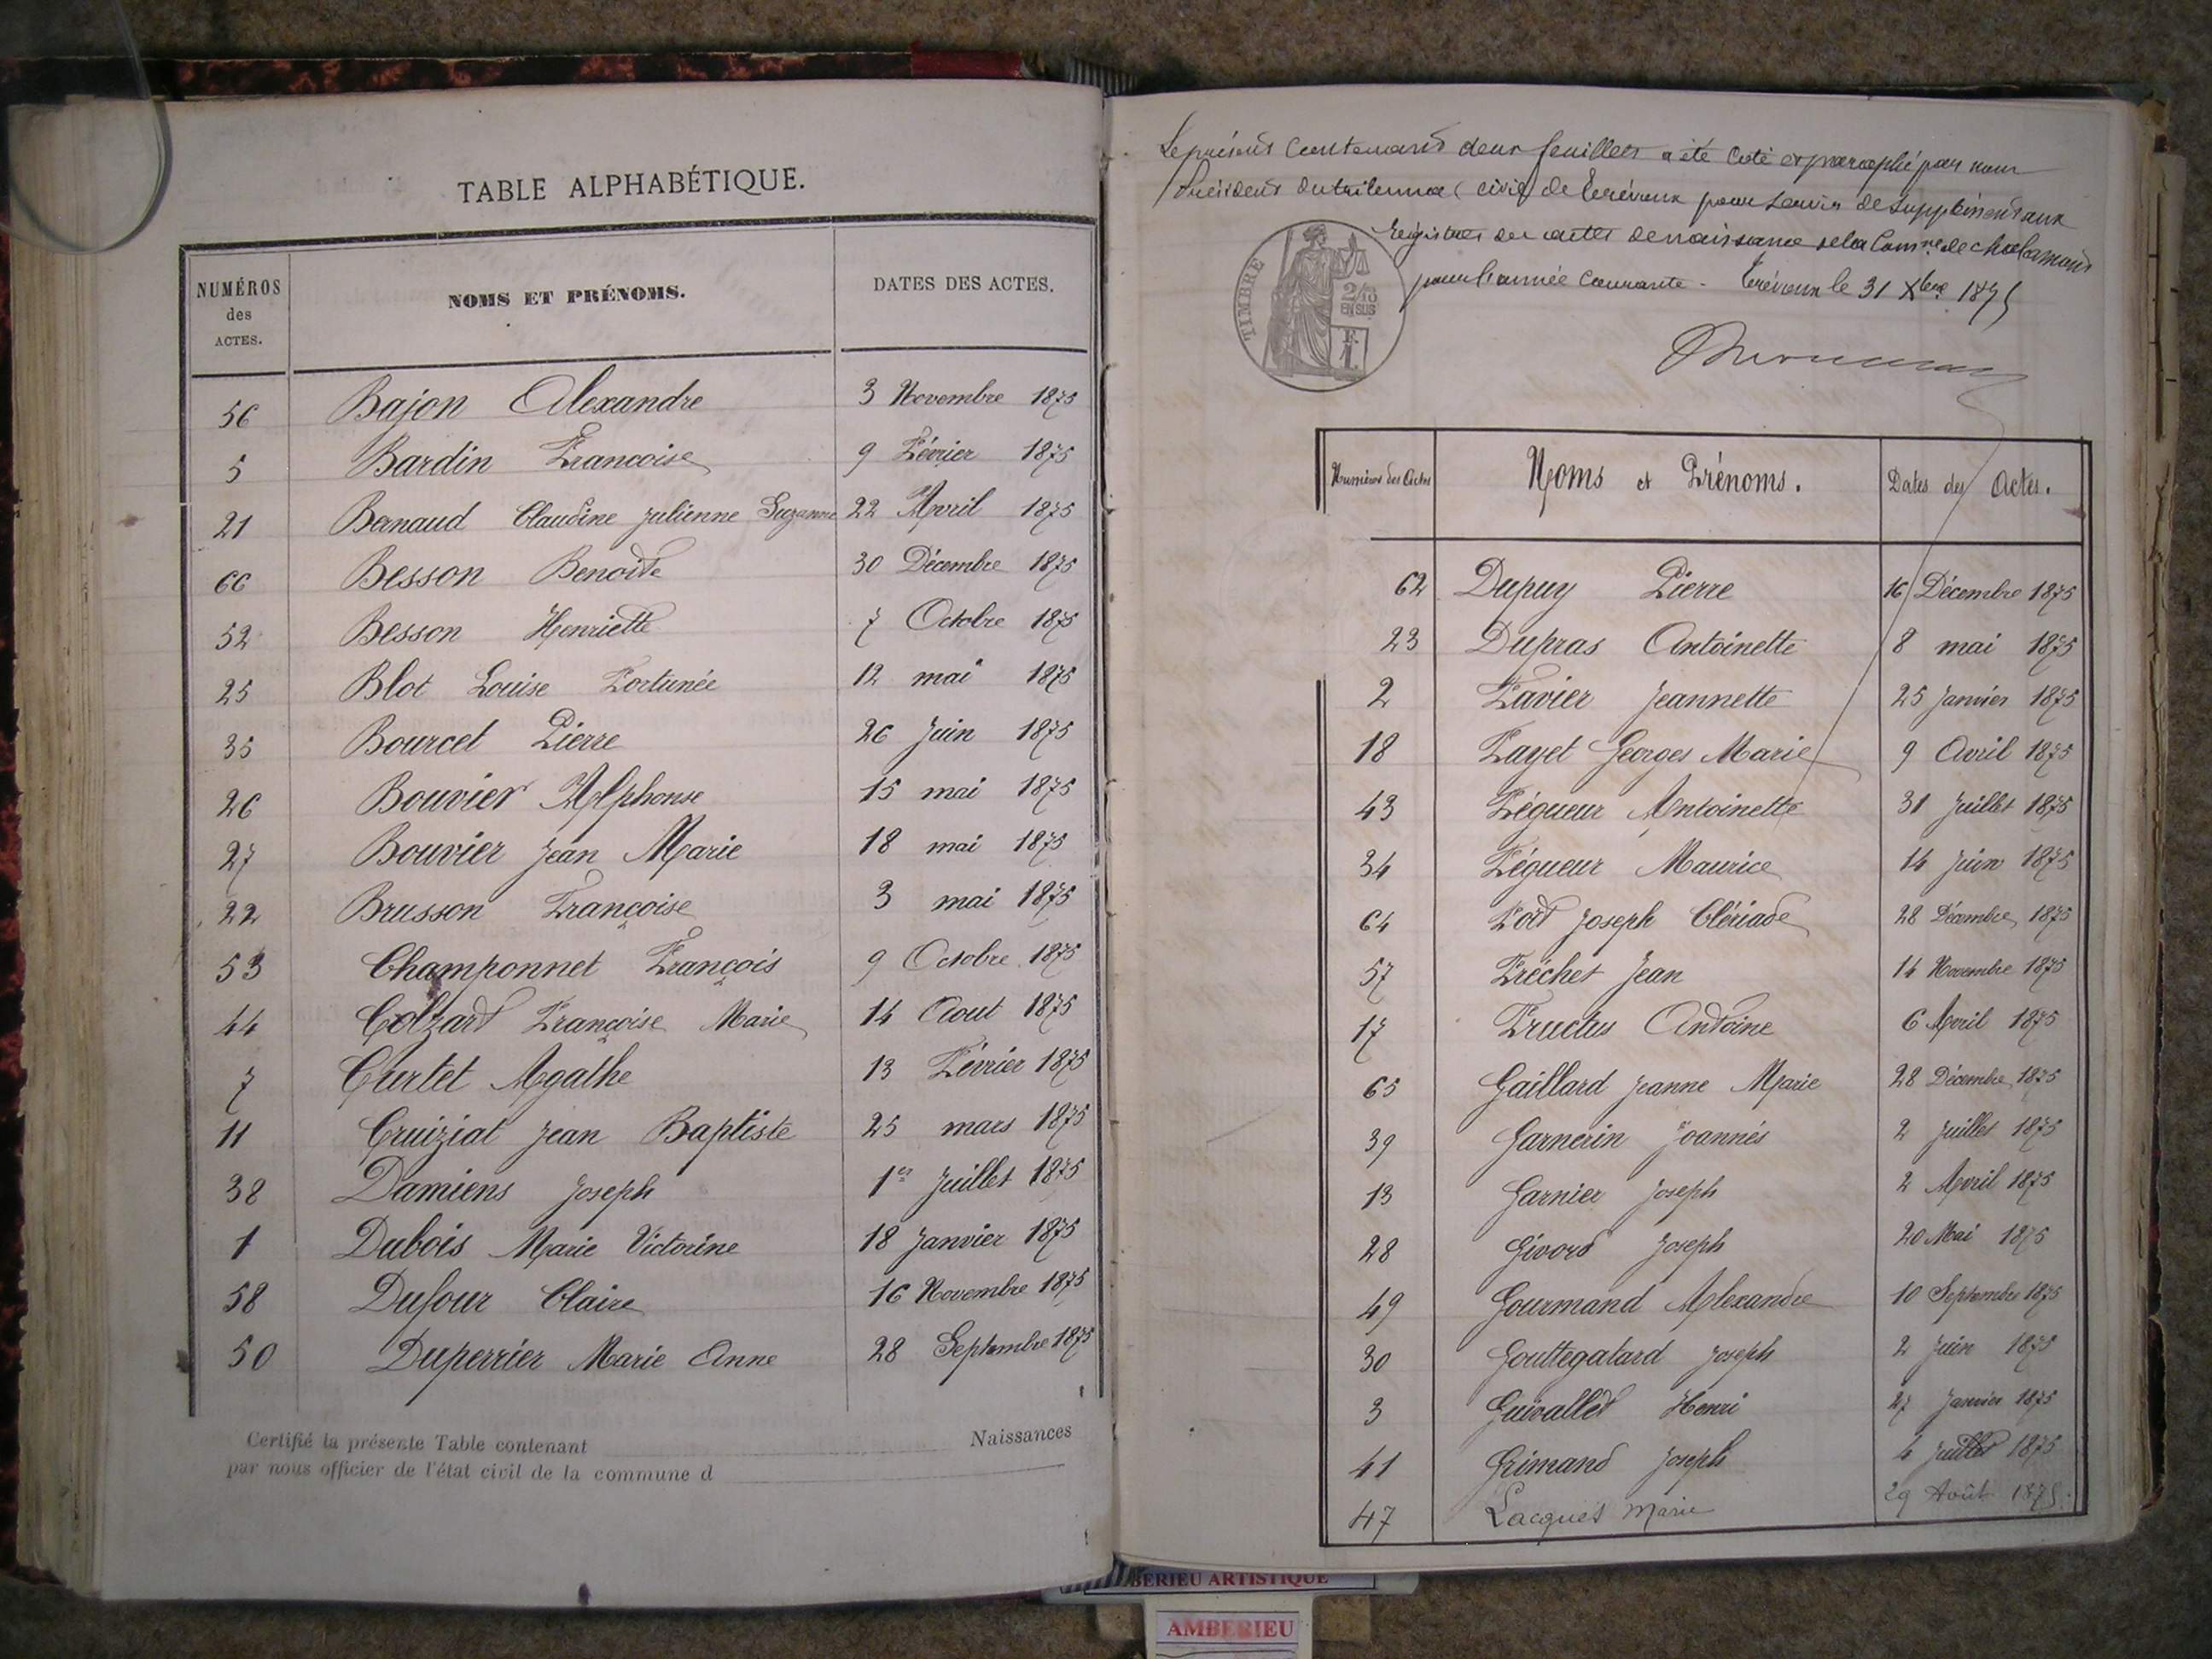 TABLE ALPHABÉTIQUE.
NUMÉROS des ACTES. NOMS ET PRÉNOMS. DATES DES ACTES.
56 Bajon Alexandre 3 Novembre 1875
5 Bardin Francoise 9 Février 1875
21 Bernaud Claudine Julienne Suzanne 22 Avril 1875
66 Besson Benoite 30 Décembre 1875
52 Besson Henriette 7 Octobre 1875
25 Blot Louise Fortunée 12 mai 1875
35 Bourcet Pierre 26 Juin 1875
26 Bouvier Alphonse 15 mai 1875
27 Bouvier Jean Marie 18 mai 1875
22 Brusson Françoise 3 mai 1875
53 Champonnet François 9 Octobre 1875
44 Colzart Françoise Marie 14 Aout 1875
7 Curtet Agathe 13 Février 1875
11 Cruiziat Jean Baptiste 25 mars 1875
38 Damiens Joseph 1er Juillet 1875
1 Dubois Marie Victorine 18 Janvier 1875
58 Dufour Claire 16 Novembre 1875
50 Duperrier Marie Anne 28 Septembre 1875
Certifié la présente Table contenant Naissances
par nous officier de l'état civil de la commune d
Le présent contenant deux feuillets a été coté et paraphé par nous
Président du tribunal civil de Trévoux pour servir de supplément aux
registres des actes de naissance de la Comne de Chalamont
pour l'année courante. Trévoux le 31 Xbre 1875
TIMBRE
2/10
EN SUS
Numéros des Actes Noms et Prénoms. Dates des Actes.
62 Dupuy Pierre 16 Décembre 1875
23 Dupras Antoinette 8 mai 1875
2 Favier Jeannette 25 Janvier 1875
18 Fayet Georges Marie 9 Avril 1875
43 Fégueur Antoinette 31 Juillet 1875
34 Fégueur Maurice 14 Juin 1875
64 Fort Joseph Clériade 28 Décembre 1875
57 Fréchet Jean 14 Novembre 1875
17 Fructus Antoine 6 Avril 1875
65 Gaillard Jeanne Marie 28 Décembre 1875
39 Garnerin Joannés 2 Juillet 1875
13 Garnier Joseph 2 Avril 1875
28 Givord Joseph 20 Mai 1875
49 Gourmand Alexandre 10 Septembre 1875
30 Gouttegatard Joseph 2 Juin 1875
3 Guivallet Henri 27 Janvier 1875
41 Grimand Joseph 4 Juillet 1875
47 Lacques Marie 29 Août 1875.
BERIEU ARTISTIQUE
AMBERIEU